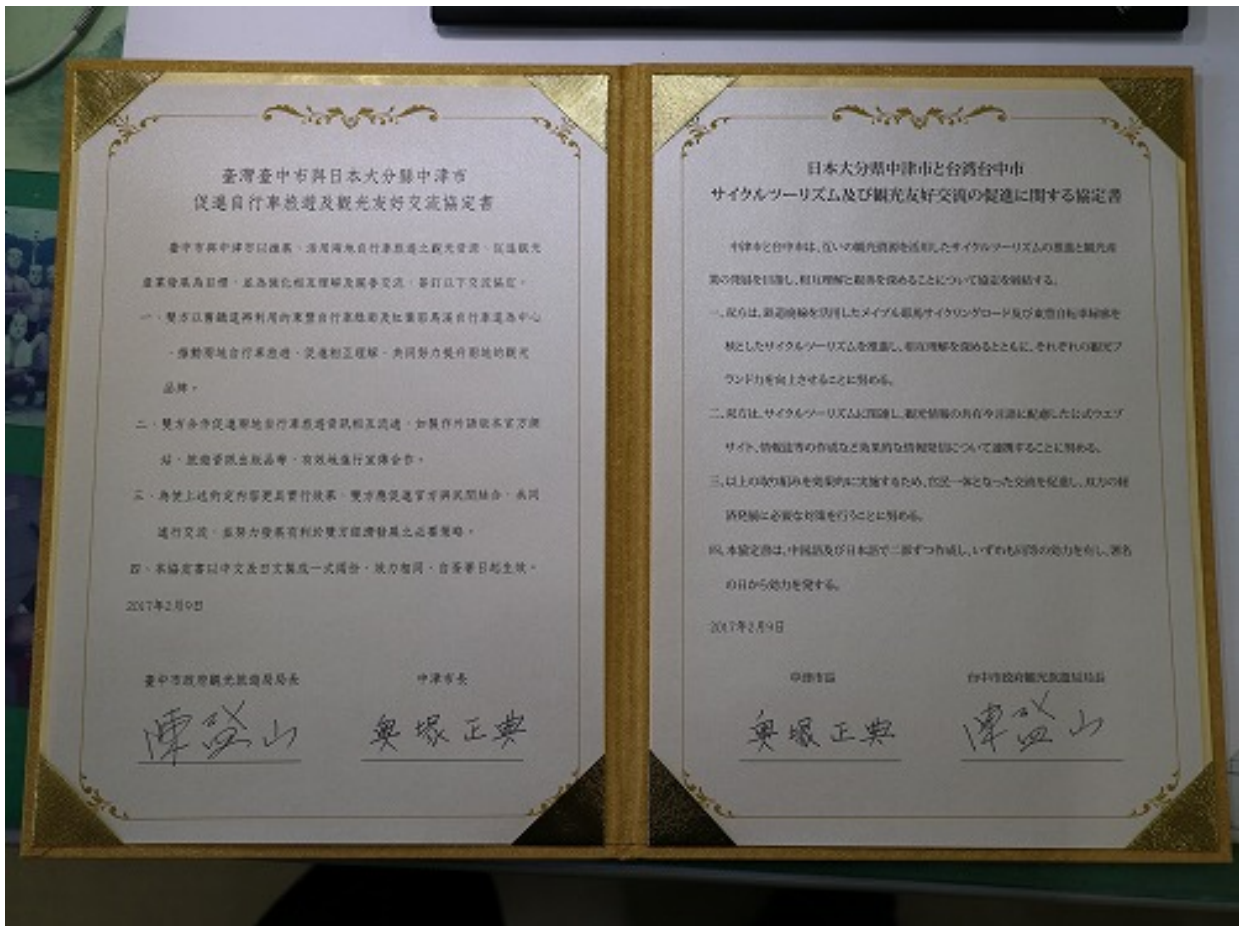 臺灣臺中市與日本大分縣中津市
促進自行車旅遊及觀光友好交流協定書
臺中市與中津市以推展、活用兩地自行車旅遊之觀光資源、促進觀光
產業發展為目標,並為強化相互理解及親善交流,簽訂以下交流協定。
一、雙方以舊鐵道再利用的東豐自行車綠廊及紅葉耶馬溪自行車道為中心
,推動兩地自行車旅遊、促進相互理解,共同努力提升兩地的觀光
品牌。
二、雙方合作促進兩地自行車旅遊資訊相互流通,如製作外語版本官方網
站、旅遊資訊出版品等,有效地進行宣傳合作。
三、為使上述約定內容更具實行效果,雙方應促進官方與民間結合,共同
進行交流,並努力發展有利於雙方經濟發展之必要策略。
四、本協定書以中文及日文製成一式兩份,效力相同,自簽署日起生效。
2017年2月9日
臺中市政府觀光旅遊局局長
中津市長
陳盛山
奥塚正典
日本大分県中津市と台湾台中市
サイクルツーリズム及び観光友好交流の促進に関する協定書
中津市と台中市は、互いの観光資源を活用したサイクルツーリズムの推進と観光産
業の発展を目指し、相互理解と親善を深めることについて協定を締結する。
一、双方は、鉄道廃線を活用したメイプル耶馬サイクリングロード及び東豊自転車緑廊を
核としたサイクルツーリズムを推進し、相互理解を深めるとともに、それぞれの観光ブ
ランド力を向上させることに努める。
二、双方は、サイクルツーリズムに関連し、観光情報の共有や言語に配慮した公式ウエブ
サイト、情報誌等の作成など効果的な情報発信について連携することに努める。
三、以上の取り組みを効果的に実施するため、官民一体となった交流を促進し、双方の経
済発展に必要な対策を行うことに努める。
四、本協定書は、中国語及び日本語で二部ずつ作成し、いずれも同等の効力を有し、署名
の日から効力を発する。
2017年2月9日
中津市長
台中市政府観光旅遊局局長
奥塚正典
陳盛山